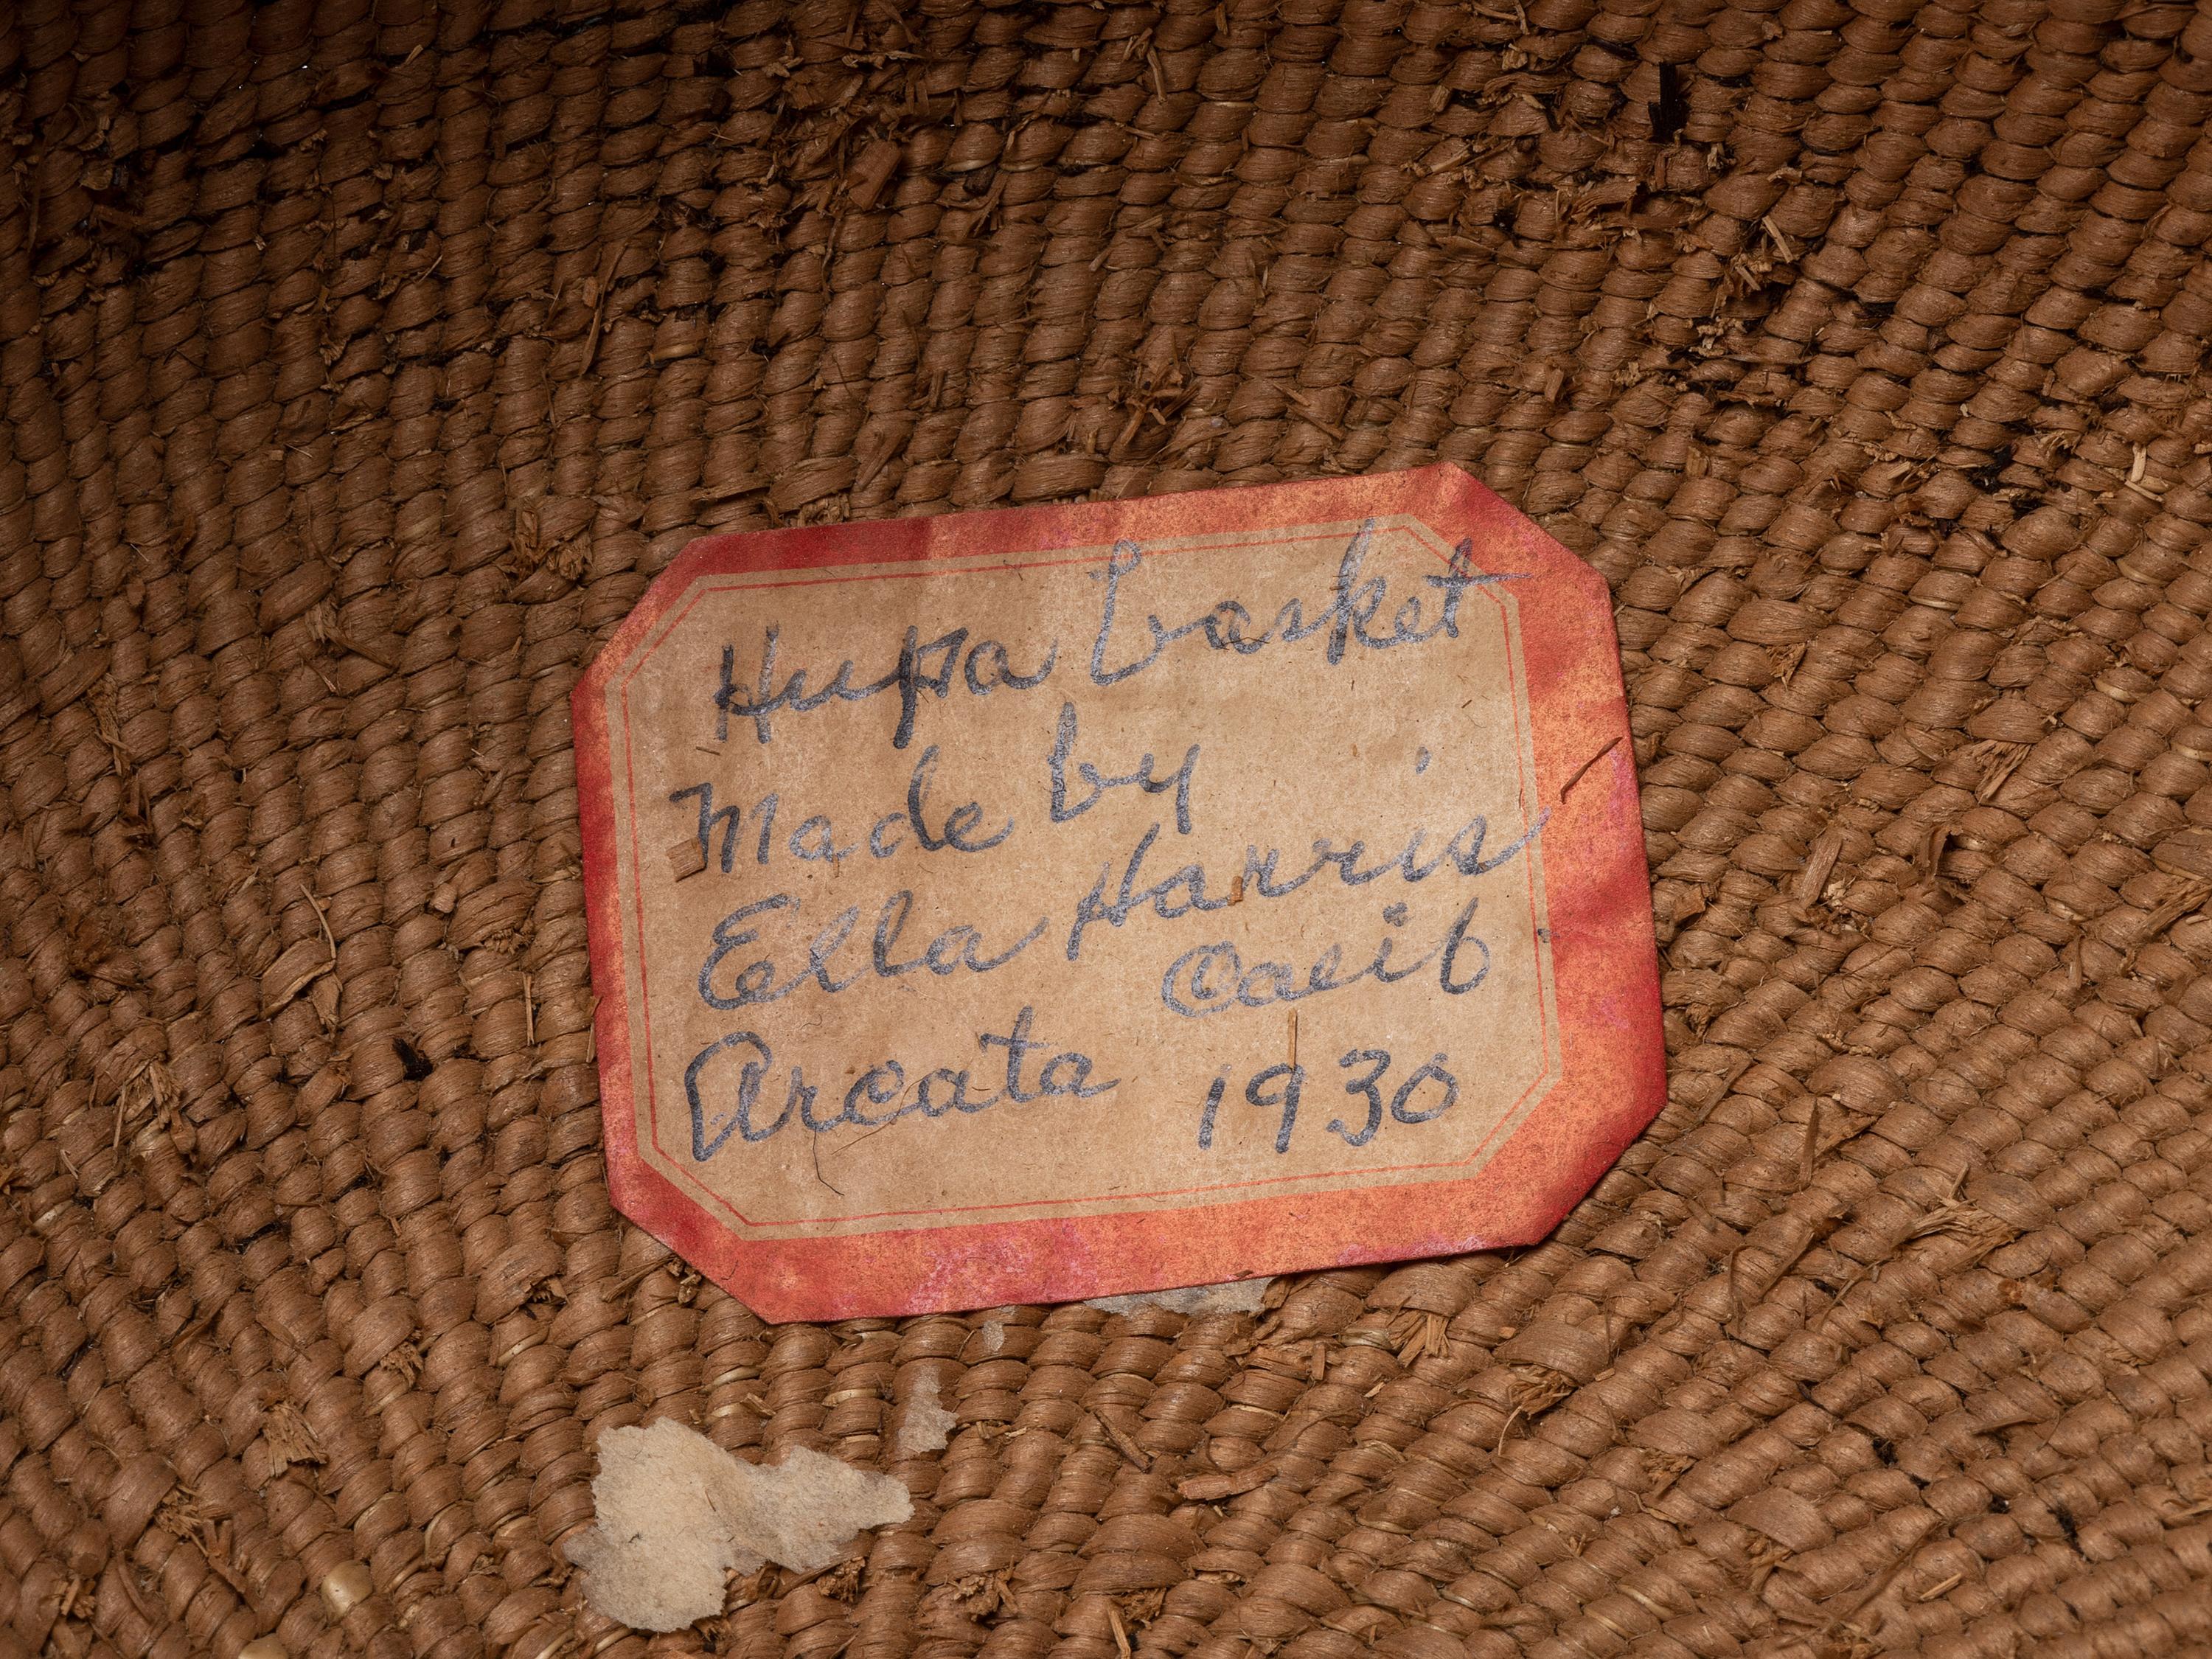 Hupa basket
Made by
Ella Harris
Arcata Calif
1930